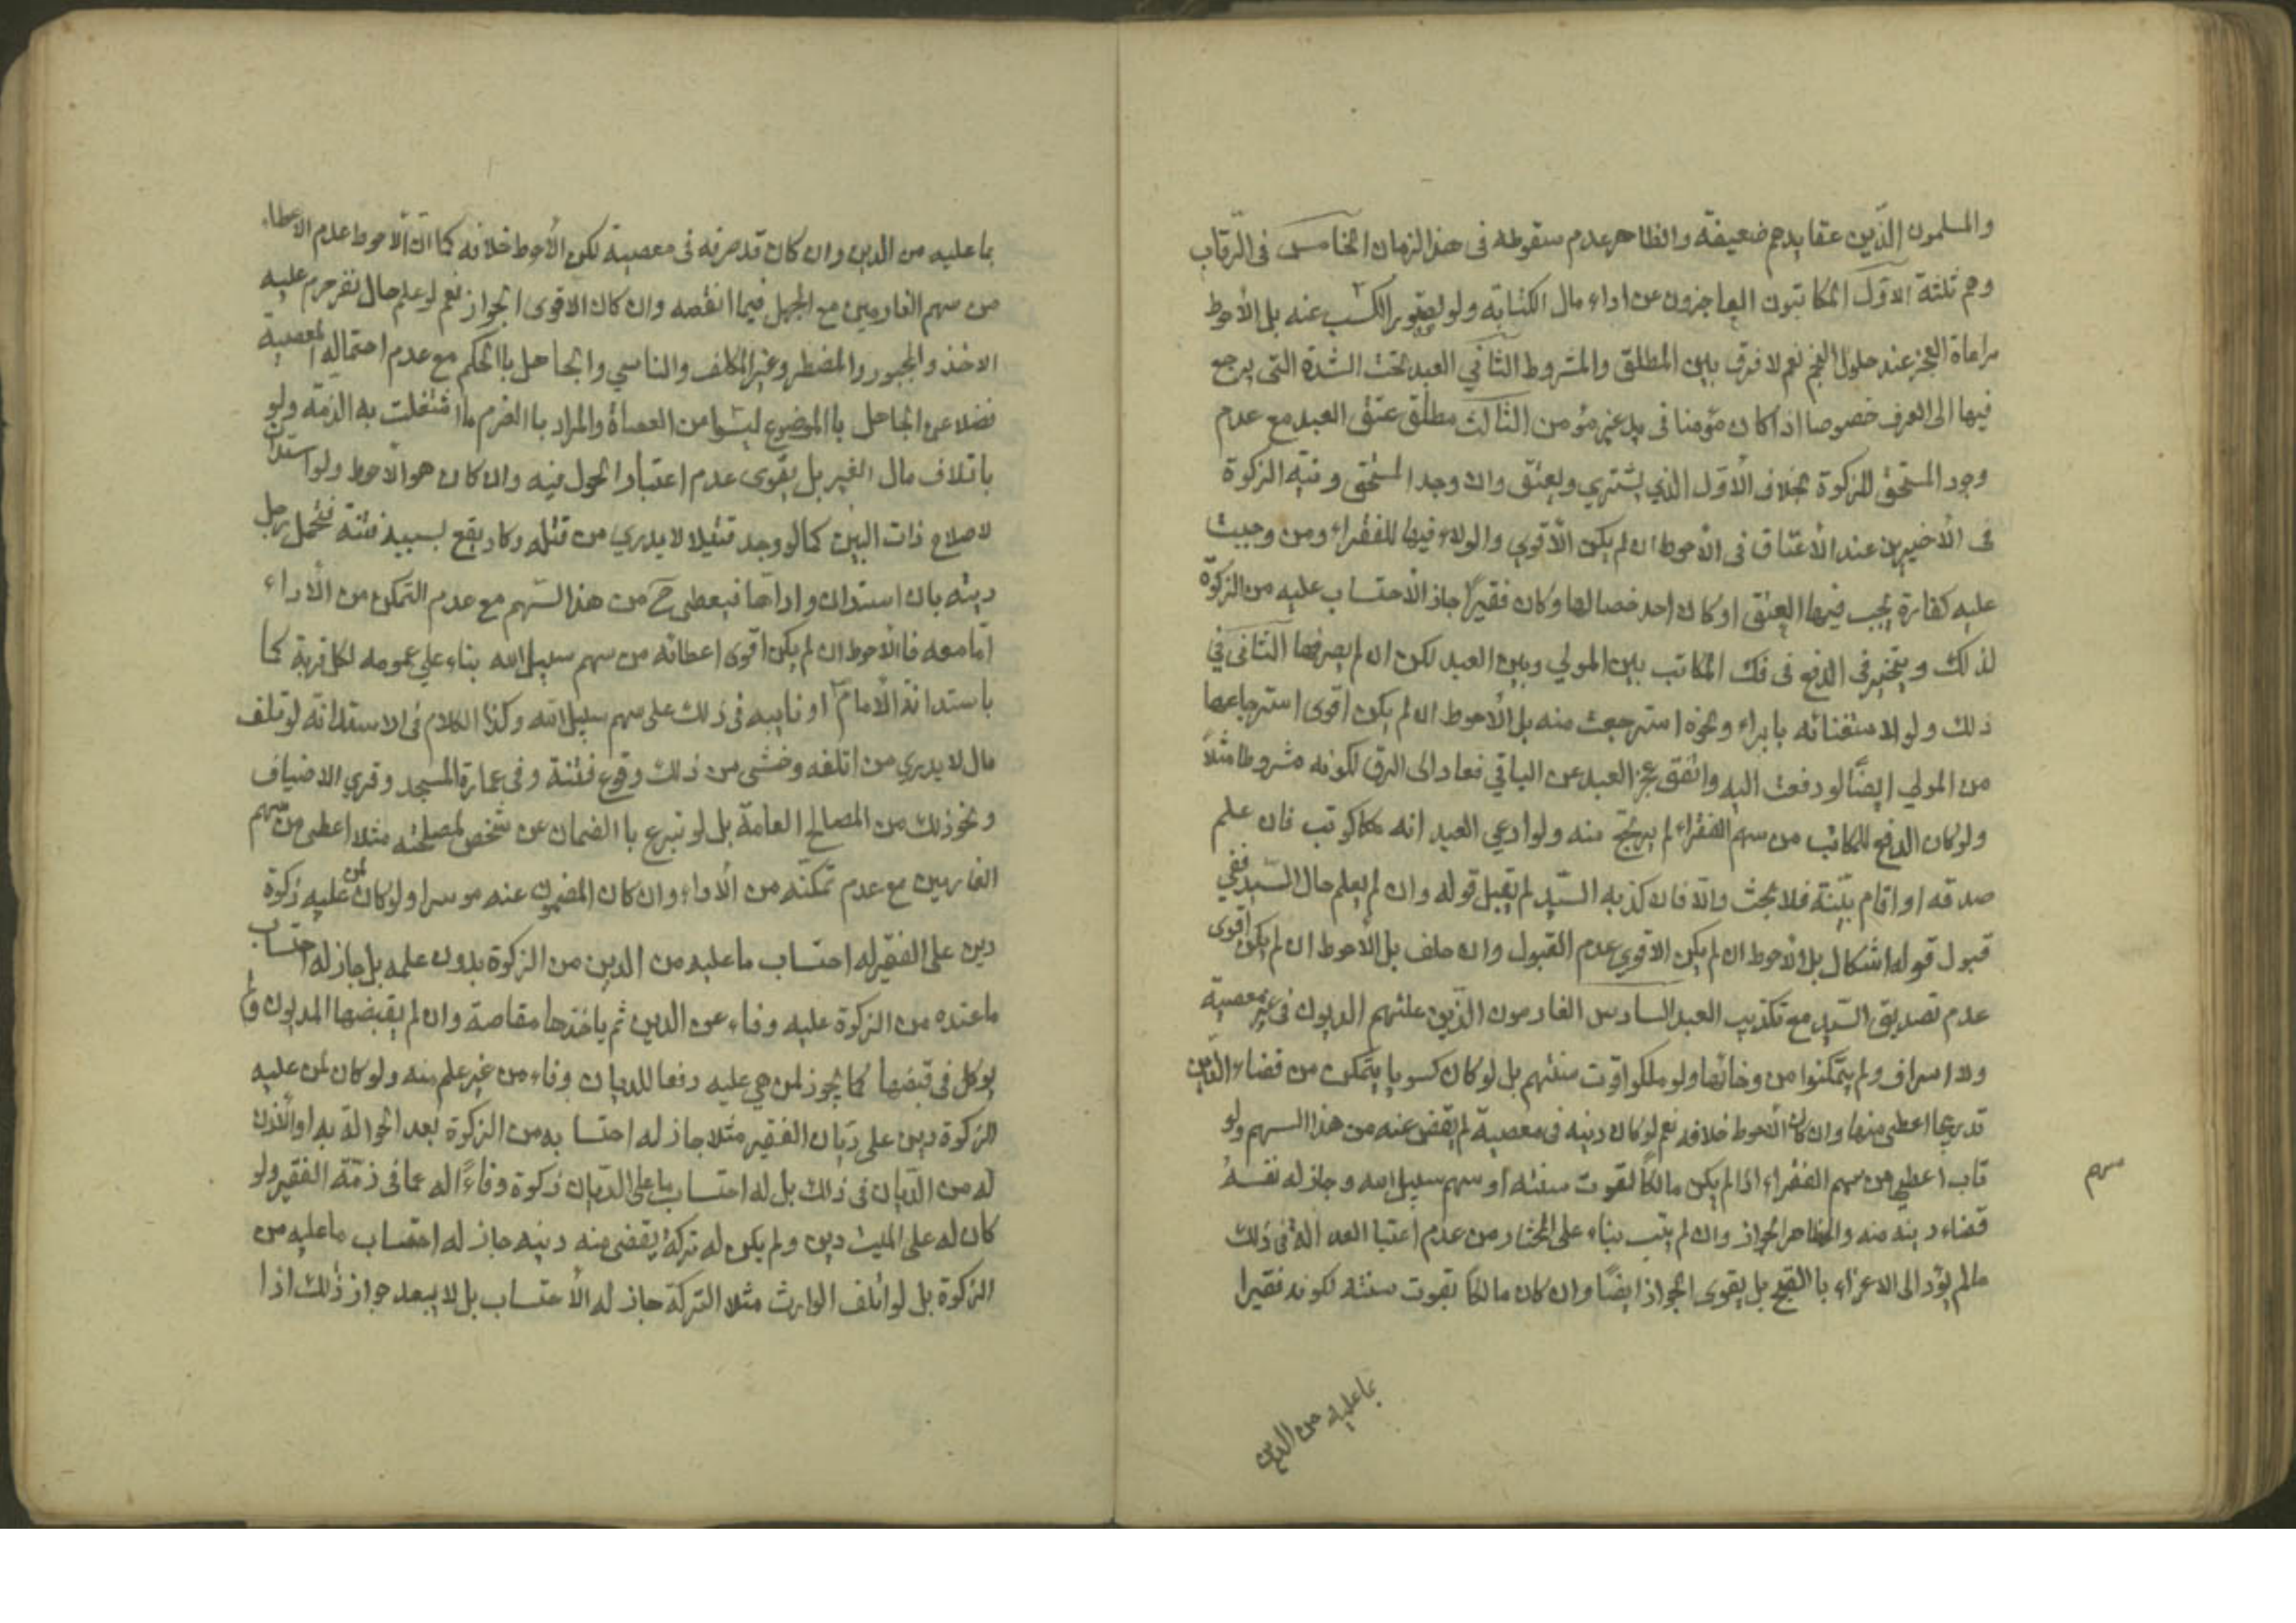 والمسلمون الذين عقايدهم ضعيفة والظاهر عدم سقوطه فى هذا الزمان الخامس فى الرقاب
وهم ثلثة الاول المكاتبون العاجزون عن اداء مال الكتابة ولو لقصور الكسب عنه بل الأحوط
مراعاة العجز عند حلول النجم نعم لا فرق بين المطلق والمشروط الثاني العبد تحت الشدة التى يرجع
فيها الى العرف خصوصا اذا كان مؤمنا فى يد غير مؤمن الثالث مطلق عتق العبد مع عدم
وجود المستحق للزكوة بخلاف الأول الذي يشتري ويعتق وان وجد المستحق ونية الزكوة
فى الأخيرين عند الأعتاق فى الأحوط ان لم يكن الأقوي والولاء فيها للفقراء ومن وجبت
عليه كفارة يجب فيها العتق او كان احد خصالها وكان فقيرا جاز الأحتساب عليه من الزكوة
لذلك ويتخير فى الدفع فى فك المكاتب بين المولي وبين العبد لكن ان لم يصرفها الثانى في
ذلك ولو لاستغنائه بابراء ونحوه استرجعت منه بل الأحوط ان لم يكن اقوى استرجاعها
من المولي ايضًا لو دفعت اليه واتفق عجز العبد عن الباقي فعاد الى الرق لكونه مشروطا مثلاً
ولو كان الدفع للمكاتب من سهم الفقراء لم يرتجع منه ولو ادعي العبد انه مكاتب فان علم
صدقه او اقام بيّنة فلا بحث والا فان كذبه السيّد لم يقبل قوله وان لم يعلم حال السيد ففي
قبول قوله اشكال بل الأحوط ان لم يكن الاقوي عدم القبول وان حلف بل الأحوط ان لم يكن اقوى
عدم تصديق السيد مع تكذيب العبد السادس الغارمون الذين علتهم الديون في غير معصية
ولا اسراف ولم يتمكنوا من وفائها ولو ملكوا قوت سنتهم بل لو كان كسوبا يتمكن من قضاء الدين
تدريجا اعطى منها وان كان الأحوط خلافه نعم لو كان دينه فى معصية لم يقض عنه من هذا السهم ولو
تاب اعطي من سهم الفقراء اذا لم يكن مالكا لقوت سنته او سهم سبيل الله وجاز له نفسه
سهم
قضاء دينه منه والظاهر الجواز وان لم يتب بناء على المختار من عدم اعتبار العدالة فى ذلك
مالم يؤد الى الاغراء بالقبح بل يقوى الجواز ايضًا وان كان مالكا لقوت سنته لكونه فقيرا
بما عليه من الدين
بما عليه من الدين وان كان قد صرفه فى معصية لكن الأحوط خلافه كما ان الأحوط عدم الاعطاء
من سهم الغارمين مع الجهل فيما انفقه وان كان الاقوى الجواز نعم لو علم حال نفر حرم عليه
الاخذ والمجبور والمضطر وغير المكلف والناسي والجاهل باالحكم مع عدم احتماله المعصية
فضلا عن الجاهل باالموضوع ليسوا من العصاة والمراد باالغرم ما اشتغلت به الذمة ولو
باتلاف مال الغير بل يقوى عدم اعتبار الحول فيه وان كان هو الأحوط ولو استدان
لاصلاح ذات البين كما لو وجد قتيلا لا يدري من قتله وكاد يقع بسببه فتنة فتحمل رجل
ديته بان استدان واداها فيعطى ح من هذا السهم مع عدم التمكن من الأداء
امّا معه فالأحوط ان لم يكن اقوى اعطائه من سهم سبيل الله بناء علي عمومه لكل قربة كما
باستدانة الأمام او نايبه فى ذلك على سهم سبيل الله وكذا الكلام فى الاستدانة لو تلف
مال لا يدري من اتلفه وخشى من ذلك وقوع فتنة وفى عمارة المسجد وقري الاضياف
ونحو ذلك من المصالح العامة بل لو تبرع باالضمان عن شخص لمصلحته مثلا اعطى من سهم
الغارمين مع عدم تمكنه من الأداء وان كان المضمون عنه موسرا ولو كان لمن عليه زكوة
دين على الفقير له احتساب ما عليه من الدين من الزكوة بدون علمه بل جاز له احتساب
ما عنده من الزكوة عليه وفاء عن الدين ثم ياخذها مقاصة وان لم يقبضها المديون ولم
يوكل فى قبضها كما يجوز لمن هي عليه دفعا للديان وفاء من غير علم منه ولو كان لمن عليه
الزكوة دين على ديّان الفقير مثلا جاز له احتسابه من الزكوة بعد الحوالة به او الأذن
له من الديان فى ذلك بل له احتساب ما على الديان زكوة وفاءً له عما فى ذمّة الفقير ولو
كان له على الميت دين ولم يكن له تركة يقضى منه دينه جاز له احتساب ما عليه من
الزكوة بل لو اتلف الوارث مثلا التركة جاز له الأحتساب بل لا يبعد جواز ذلك اذا